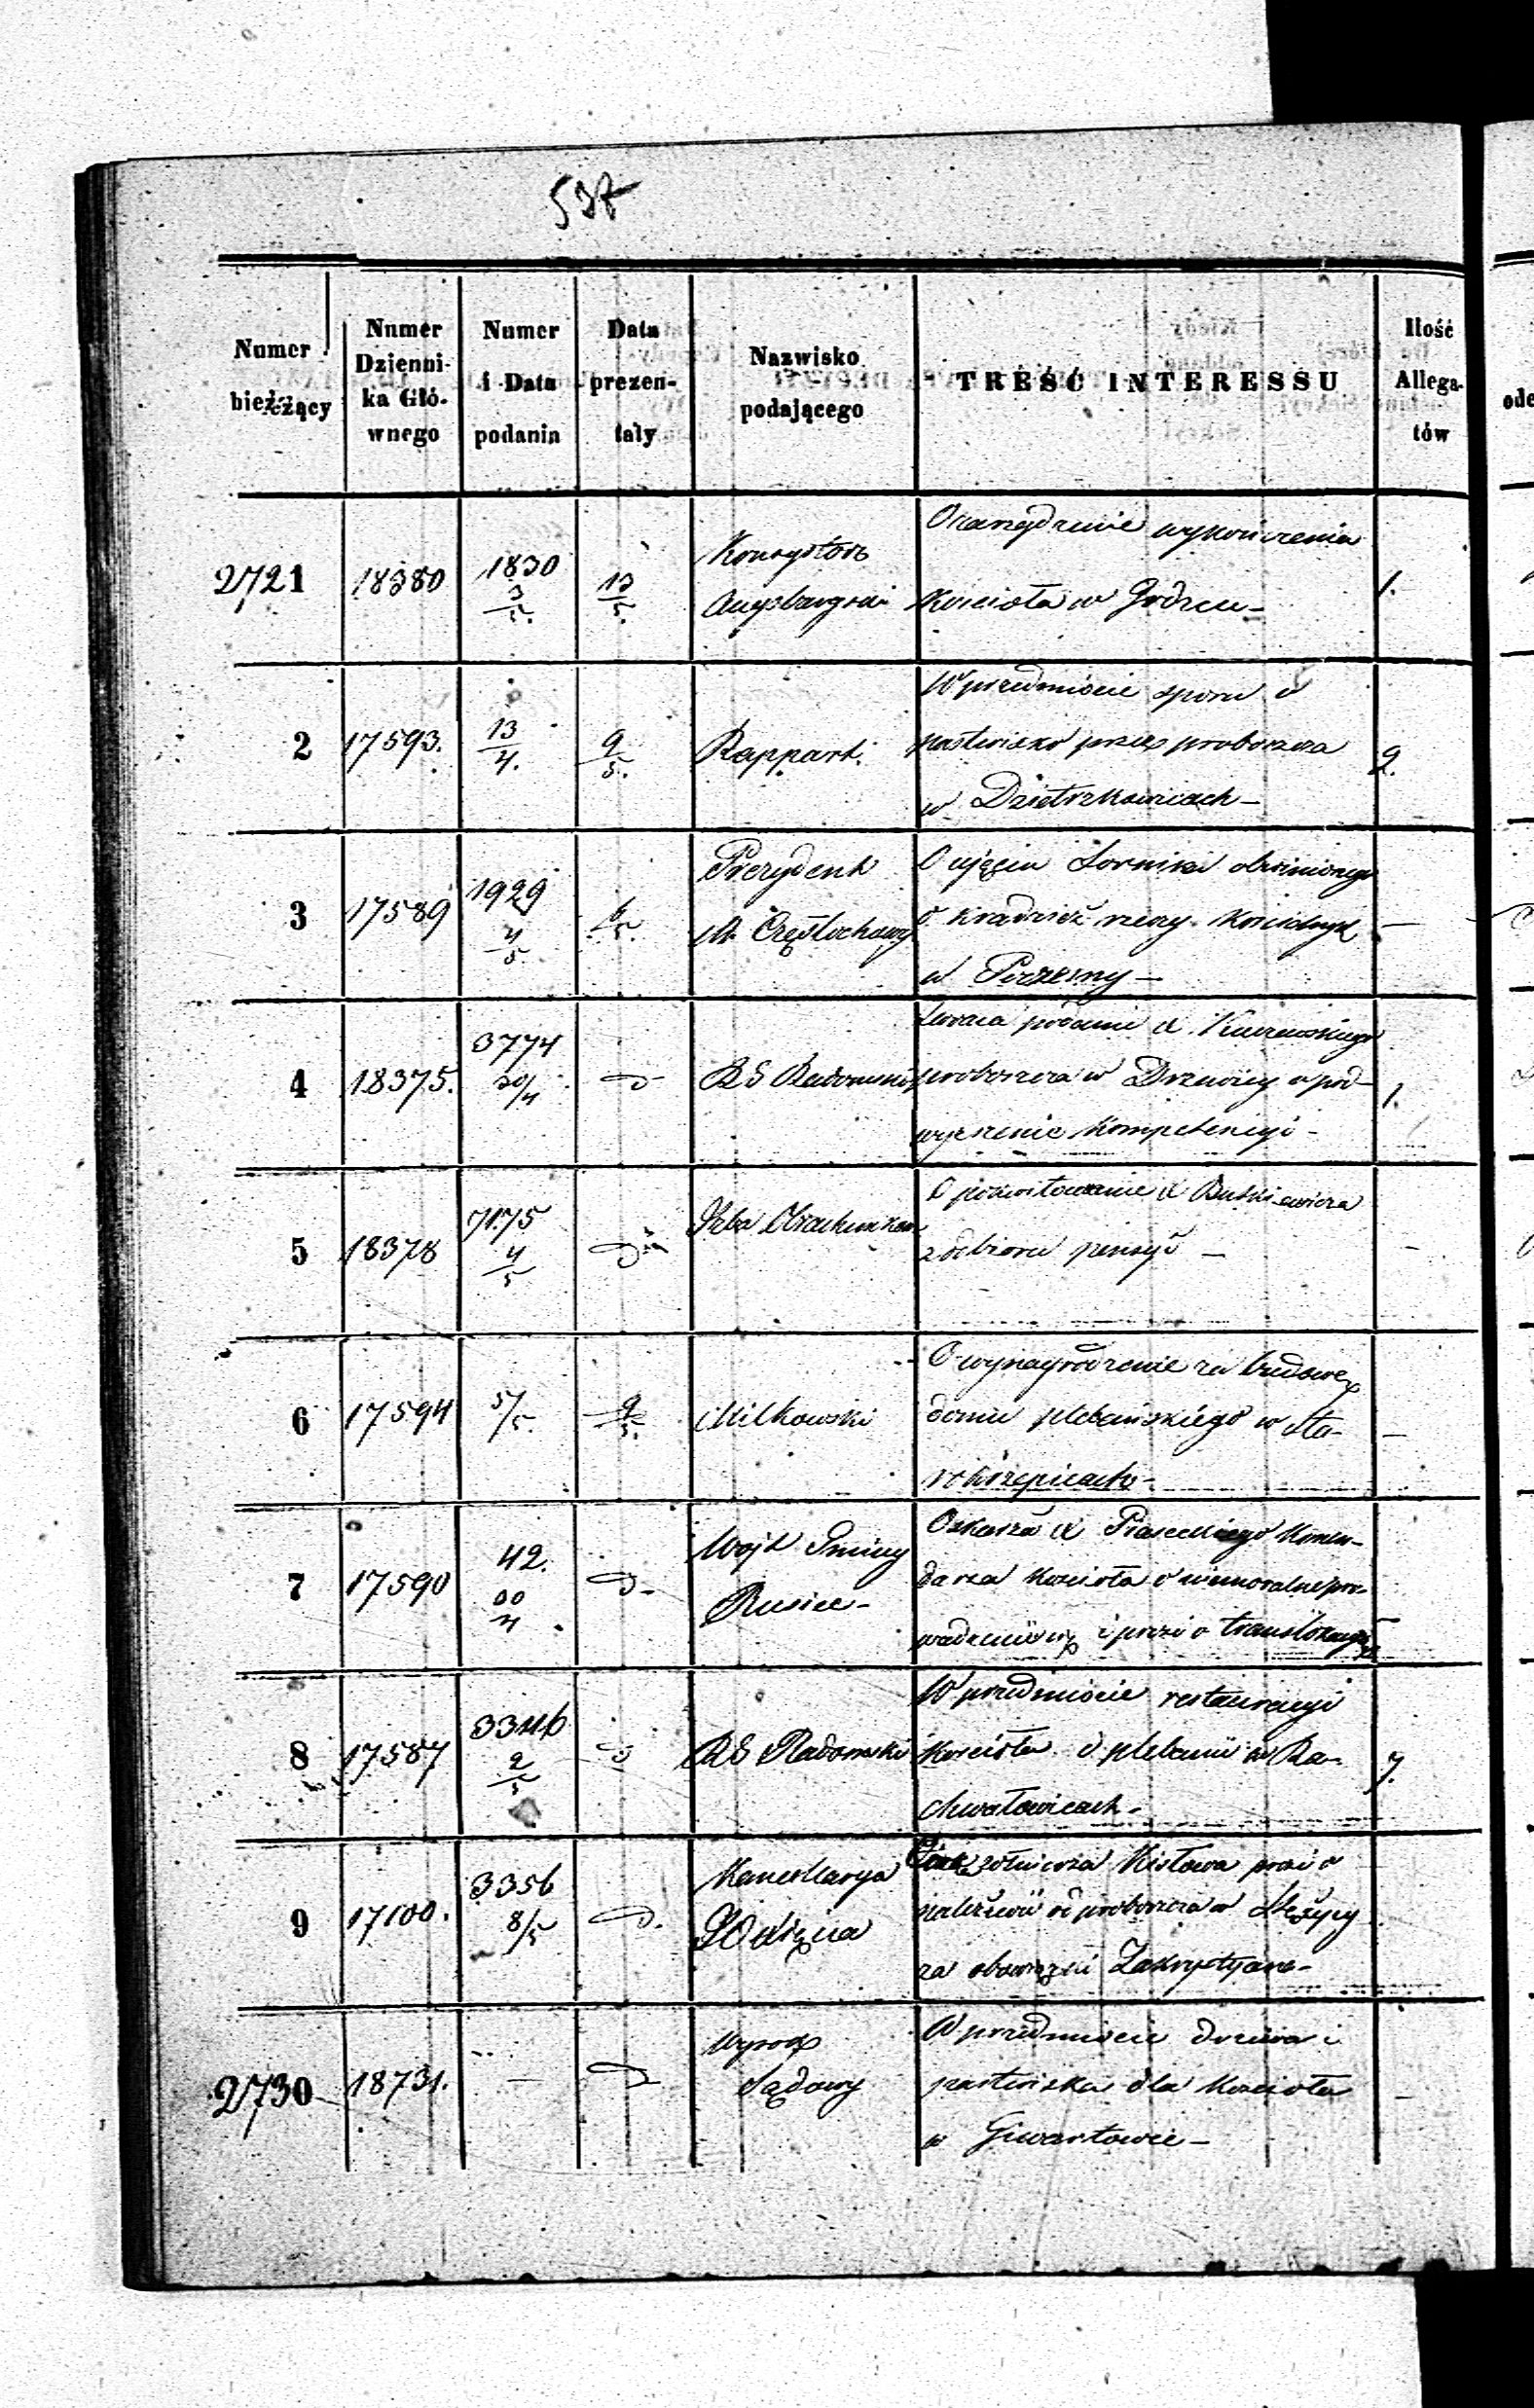 537
Numer bieżący
Numer Dzienni-ka Głó-wnego
Numer i Data podania
Data prezen-taty
Nazwisko podającego
TREŚĆ INTERESSU
Ilość Allega-tów
2721 18380 1830 3/5. 13/5. Konsystorz
Augsburgski
O zarządzenie wykończenia
Kościoła w Grodzcu - 1.
2 17593. 13/4. 9/5. Rappart.
W przedmiocie sporu o
pastwisko przez proboszcza
w Dzietrzkowicach - 2.
3 17589 1929 4/5 6/5. Prezydent
M. Częstochowy
O ujęciu obwinionego
o kradzież rzeczy Kościelnych
w -
4 18375. 3774 30/4 d RG Radomski
Zwraca podanie X.
proboszcza w Drzewicy o pod-
wyższenie Kompetencyi - 1.
5 18378 7175 4/5 d Izba Obrachunkow.
O pokwitowanie X
z odbioru pensyi -
6 17594 5/5. 9/5. Milkowski
O wynagrodzenie za budowę
domu plebańskiego w Sta-
rokrzepicach -
7 17590 42. d. Wójt Gminy
Rusiec -
Oskarża X Piaseckiego Komen-
darza Kościoła o niemoralne pro-
wadzenie się i prosi o
8 17587 3346 2/5 d RG Radomski
W przedmiocie restauracyi
Kościoła i plebanii w Ra-
chwałowicach - 7.
9 17100. 3356 8/5 d. Kancellarya
żołnierza Kisłowa prosi o
od proboszcza w Stężycy
za obowiązki Zakrystyana -
2730 18731. - d Wyrok
Sądowy
W przedmiocie drzewa i
pastwiska dla Kościoła
w Giewartowie -